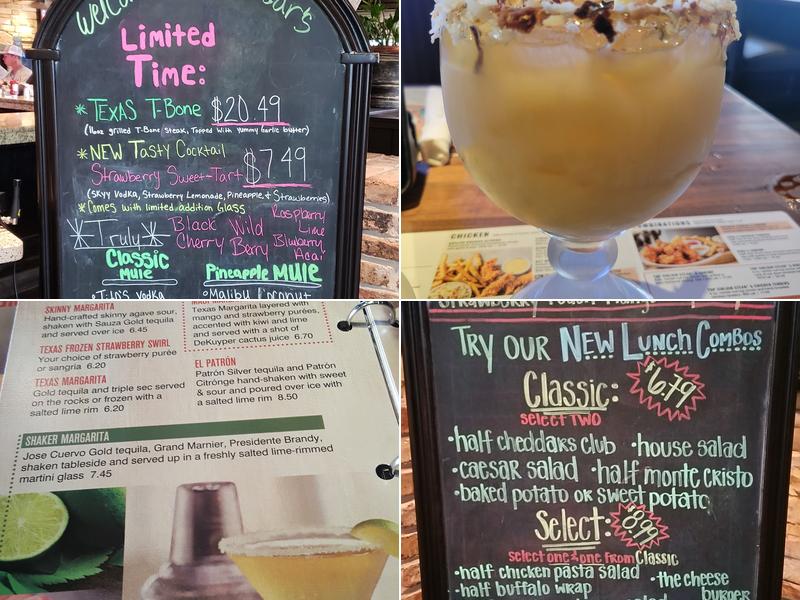 Limited
Time:
*TEXAS T-Bone $20.49
(16oz grilled T-Bone Steak, Topped with yummy Garlic butter)
*NEW Tasty Cocktail
Strawberry Sweet-Tart $7.49
(SKYY Vodka, Strawberry Lemonade, Pineapple, & Strawberries)
*Comes with limited addition Glass
*Truly*
Black Cherry
Wild Berry
Raspberry Lime
Blueberry Acai
Classic
mule
Pineapple MULE
Malibu Coconut
CHICKEN
SKINNY MARGARITA
Hand-crafted skinny agave sour,
shaken with Sauza Gold tequila
and served over ice 6.45
TEXAS FROZEN STRAWBERRY SWIRL
Your choice of strawberry purée
or sangria 6.20
TEXAS MARGARITA
Gold tequila and triple sec served
on the rocks or frozen with a
salted lime rim 6.20
Texas Margarita layered with
mango and strawberry purées,
accented with kiwi and lime
and served with a shot of
DeKuyper cactus juice 6.70
EL PATRÓN
Patrón Silver tequila and Patrón
Citrónge hand-shaken with sweet
& sour and poured over ice with
a salted lime rim 8.50
SHAKER MARGARITA
Jose Cuervo Gold tequila, Grand Marnier, Presidente Brandy,
shaken tableside and served up in a freshly salted lime-rimmed
martini glass 7.45
TRY OUR NEW LUNCH COMBOS
Classic: $6.79
select TWO
•half cheddars club •house salad
•caesar salad •half monte cristo
•baked potato or sweet potato
Select: $8.99
select one & one from Classic
•half chicken pasta salad •the cheese
•half buffalo wrap burger